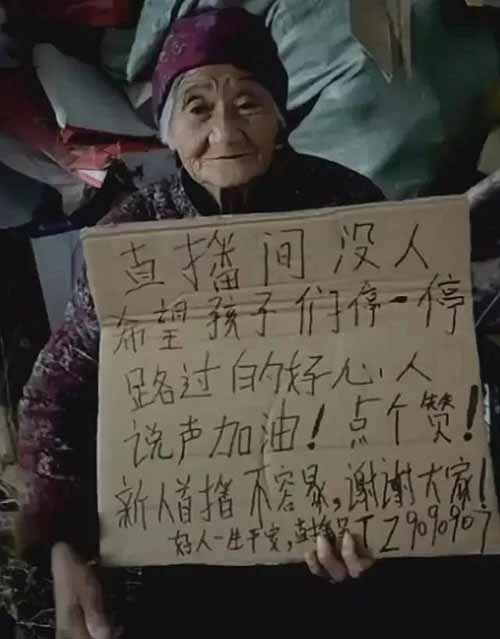 直播间没人
希望孩子们停一停
路过的好心人
说声加油！点个赞！
新人首播不容易，谢谢大家！
好人一生平安，直播号TZ9090907